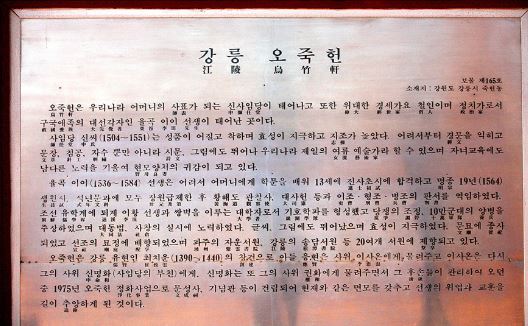 강릉 오죽헌
江陵 烏竹軒
보물 제165호
소재지 : 강원도 강릉시 죽헌동
오죽헌은 우리나라 어머니의 사표가 되는 신사임당이 태어나고 또한 위대한 경세가요 철인이며 정치가로서
구국애족의 대선각자인 율곡 이이 선생이 태어난 곳이다.
사임당 신씨(1504~1551)는 성품이 어질고 착하며 효성이 지극하고 지조가 높았다. 어려서부터 경문을 익히고
문장, 침공, 자수 뿐만 아니라 시문, 그림에도 뛰어나 우리나라 제일의 여류 예술가라 할 수 있으며 자녀교육에도
남다른 노력을 기울여 현모양처의 귀감이 되고 있다.
율곡 이이(1536~1584) 선생은 어려서 어머니에게 학문을 배워 13세에 진사초시에 합격하고 명종 19년(1564)
생원시, 식년문과에 모두 장원급제한 후 황해도 관찰사, 대사헌 등과 이조·형조·병조의 판서를 역임하였다.
조선 유학계에 퇴계 이황 선생과 쌍벽을 이루는 대학자로서 기호학파를 형성했고 당쟁의 조정, 10만군대의 양병을
주장하였으며 대동법, 사창의 실시에 노력하였다. 글씨, 그림에도 뛰어났으며 효성이 지극하였다. 문묘에 종사
되었고 선조의 묘정에 배향되었으며 파주의 자운서원, 강릉의 송담서원 등 20여개 서원에 제향되고 있다.
오죽헌은 강릉 유현인 최치운(1390~1440)의 창건으로 아들 응현은 사위 이사온에게 물려주고 이사온은 다시
그의 사위 신명화(사임당의 부친)에게, 신명화는 또 그의 사위 권화에게 물려주면서 그 후손들이 관리하여 오던
중 1975년 오죽헌 정화사업으로 문성사, 기념관 등이 건립되어 현재와 같은 면모를 갖추고 선생의 위업과 교훈을
길이 추앙하게 된 것이다.